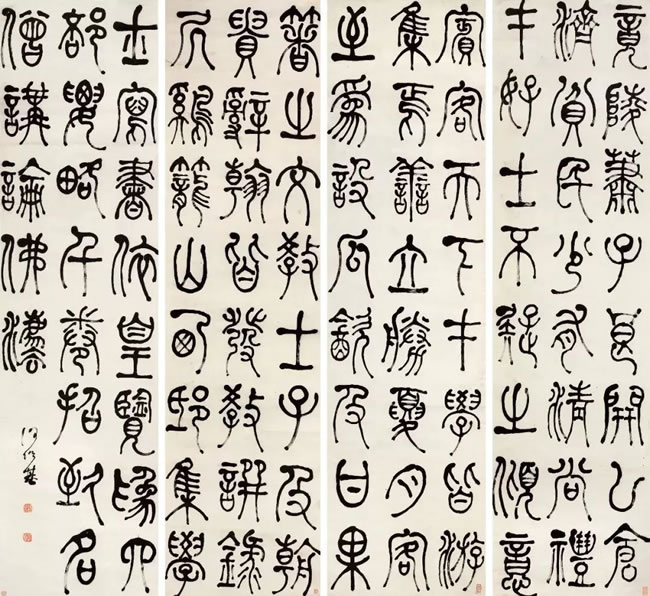 竟陵蕭子良開公倉
濟貧民少有清尚禮
才好士不疑之傾意
賓客天下才學皆游
集焉善立勝夏月客
至為設瓜飲及甘果
著之文教士子及朝
貴辭翰皆發教撰錄
凥雞籠山西邸集學
士寫書依皇覽為四
部要略千卷招致名
僧講論佛灋
何紹基